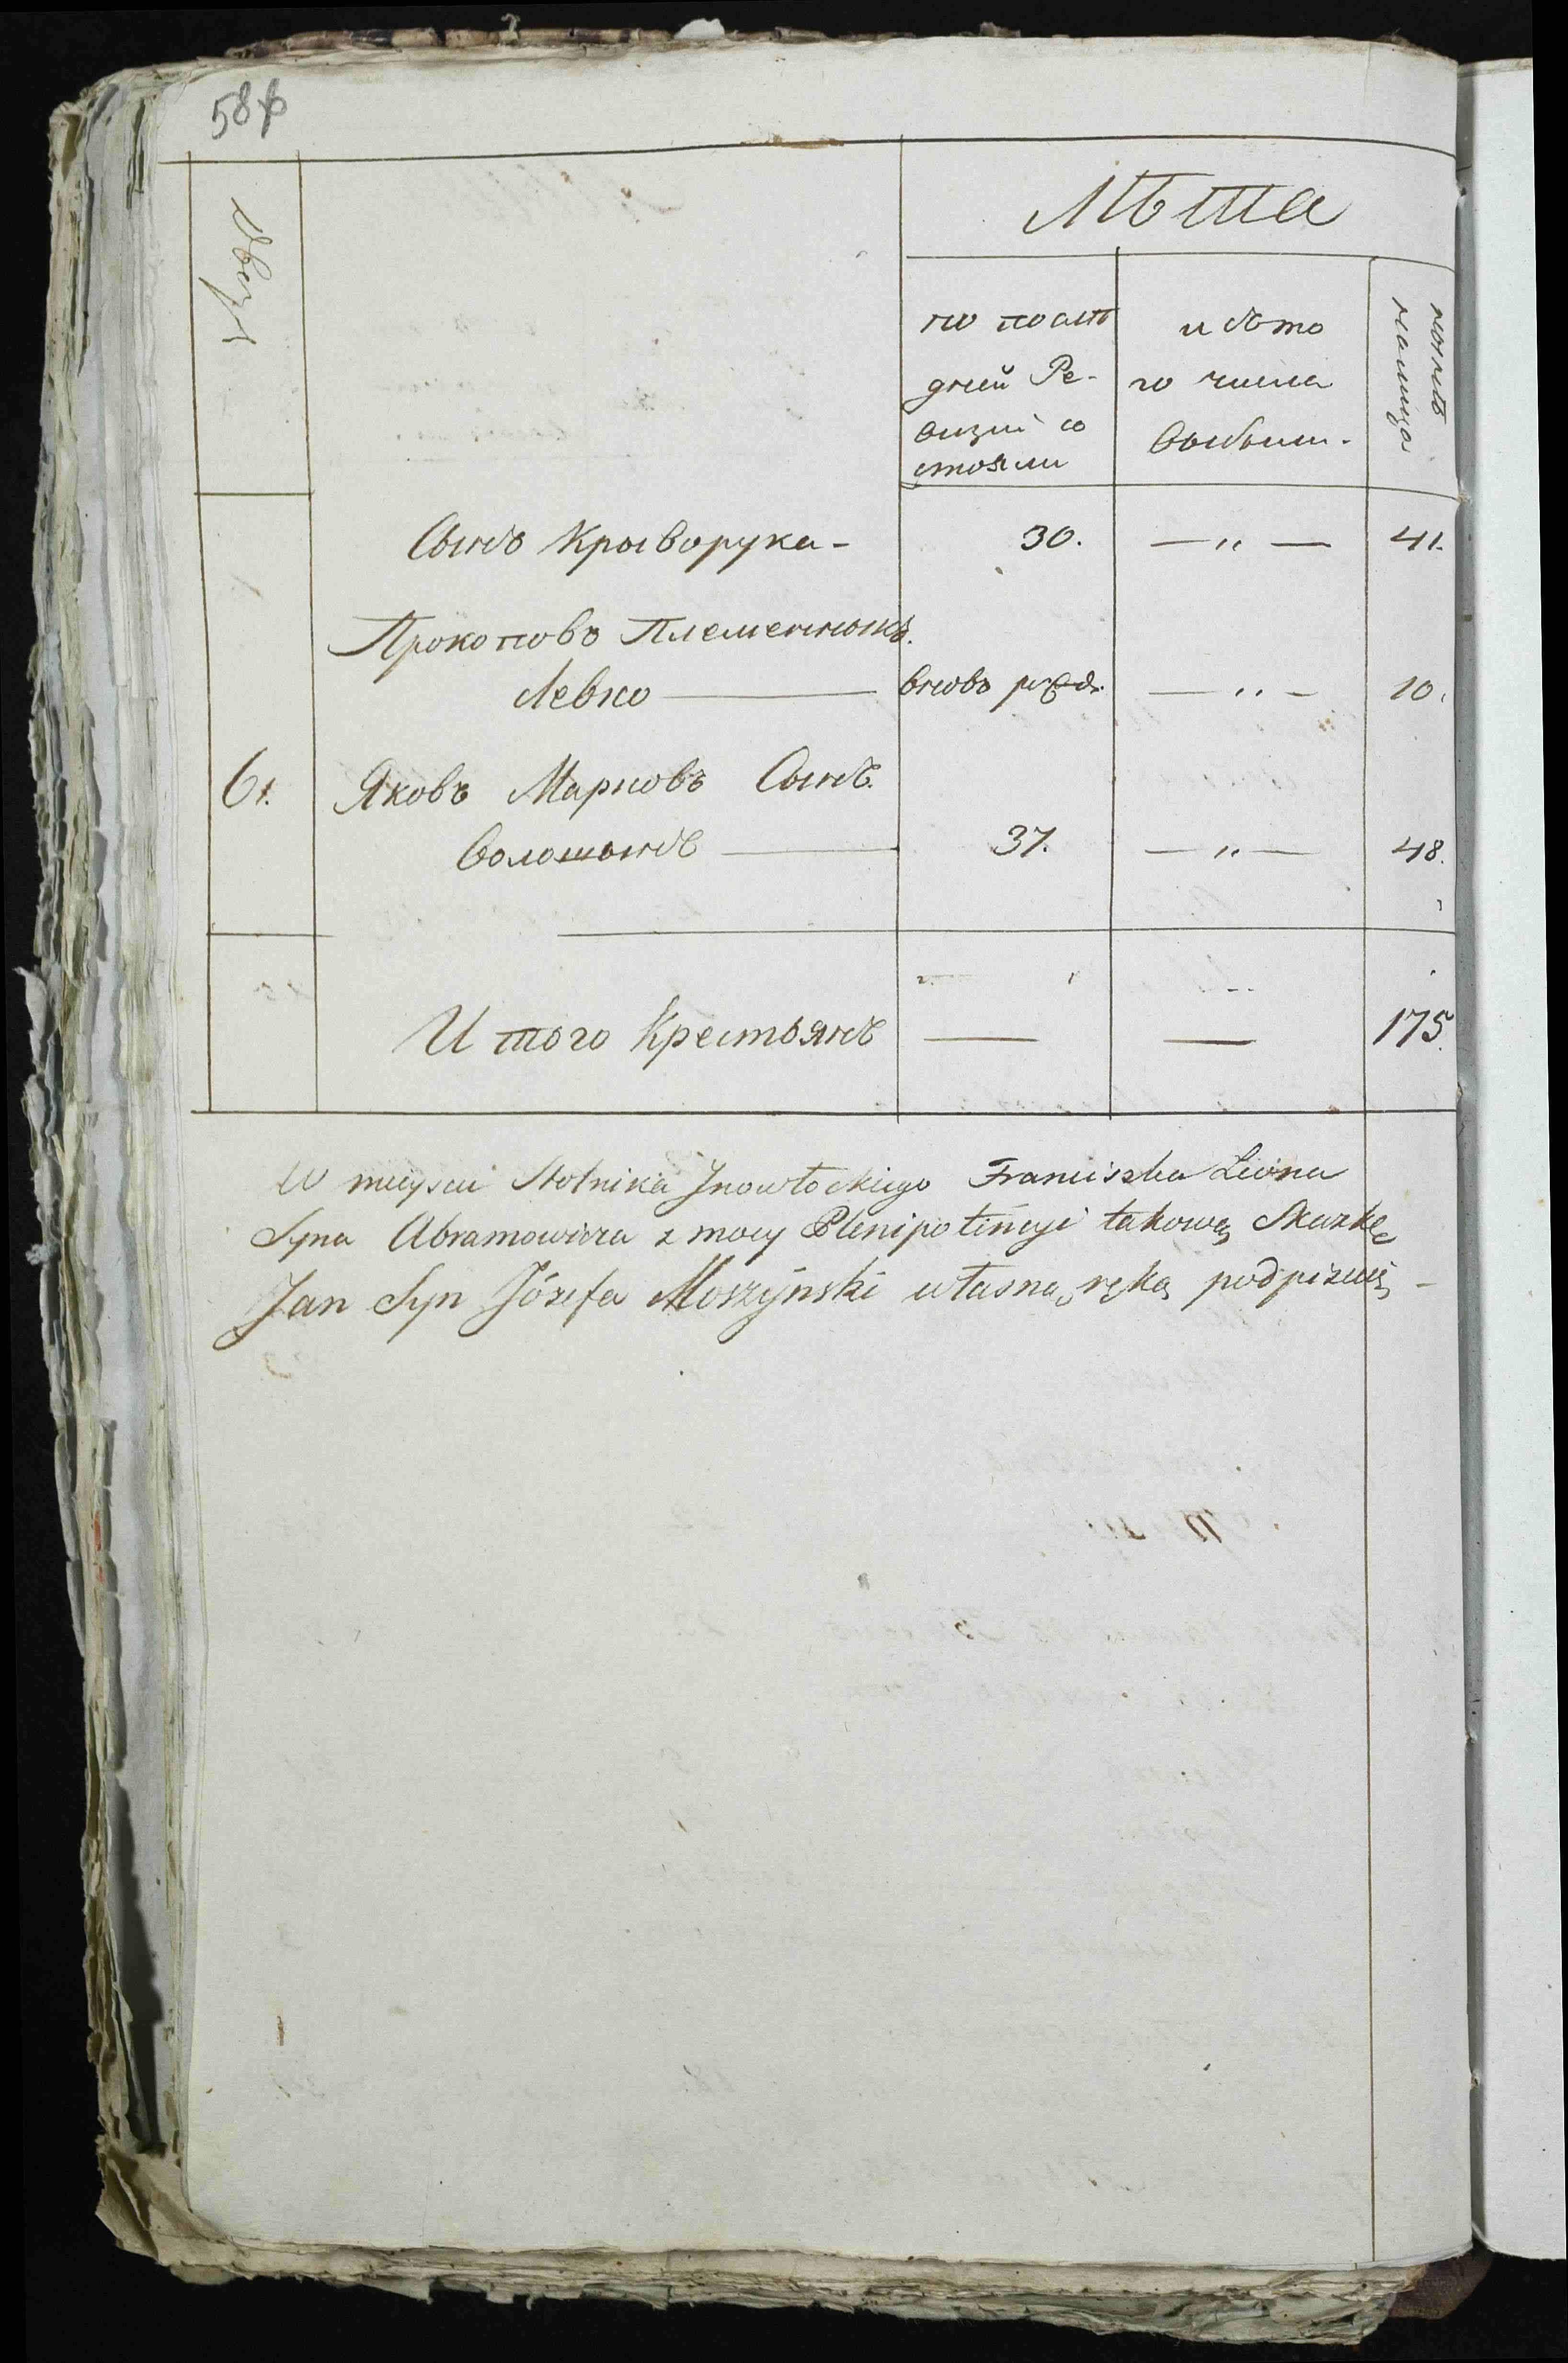 58
Двор
Лѣта
по послѣ
дней Ре-
визіи со
стояли
изъ то
го числа
выбыли.
нынѣ
на лицо
Сынъ Крыворука - 30. — „ — 41.
Прокоповъ Племенныкъ.
Левко — вновь рожд. — „ — 10.
61. Яковъ Марковъ Сынъ.
Волошынъ — 37. — „ — 48.
И того Крестьянъ — — 175.
W mieyscu Stolnika Jnowłockiego Franciszka Leona
Syna Abramowicza z mocy Plenipotencyi takową Skazkę
Jan Syn Józefa Moszyński własną ręką podpisuię -